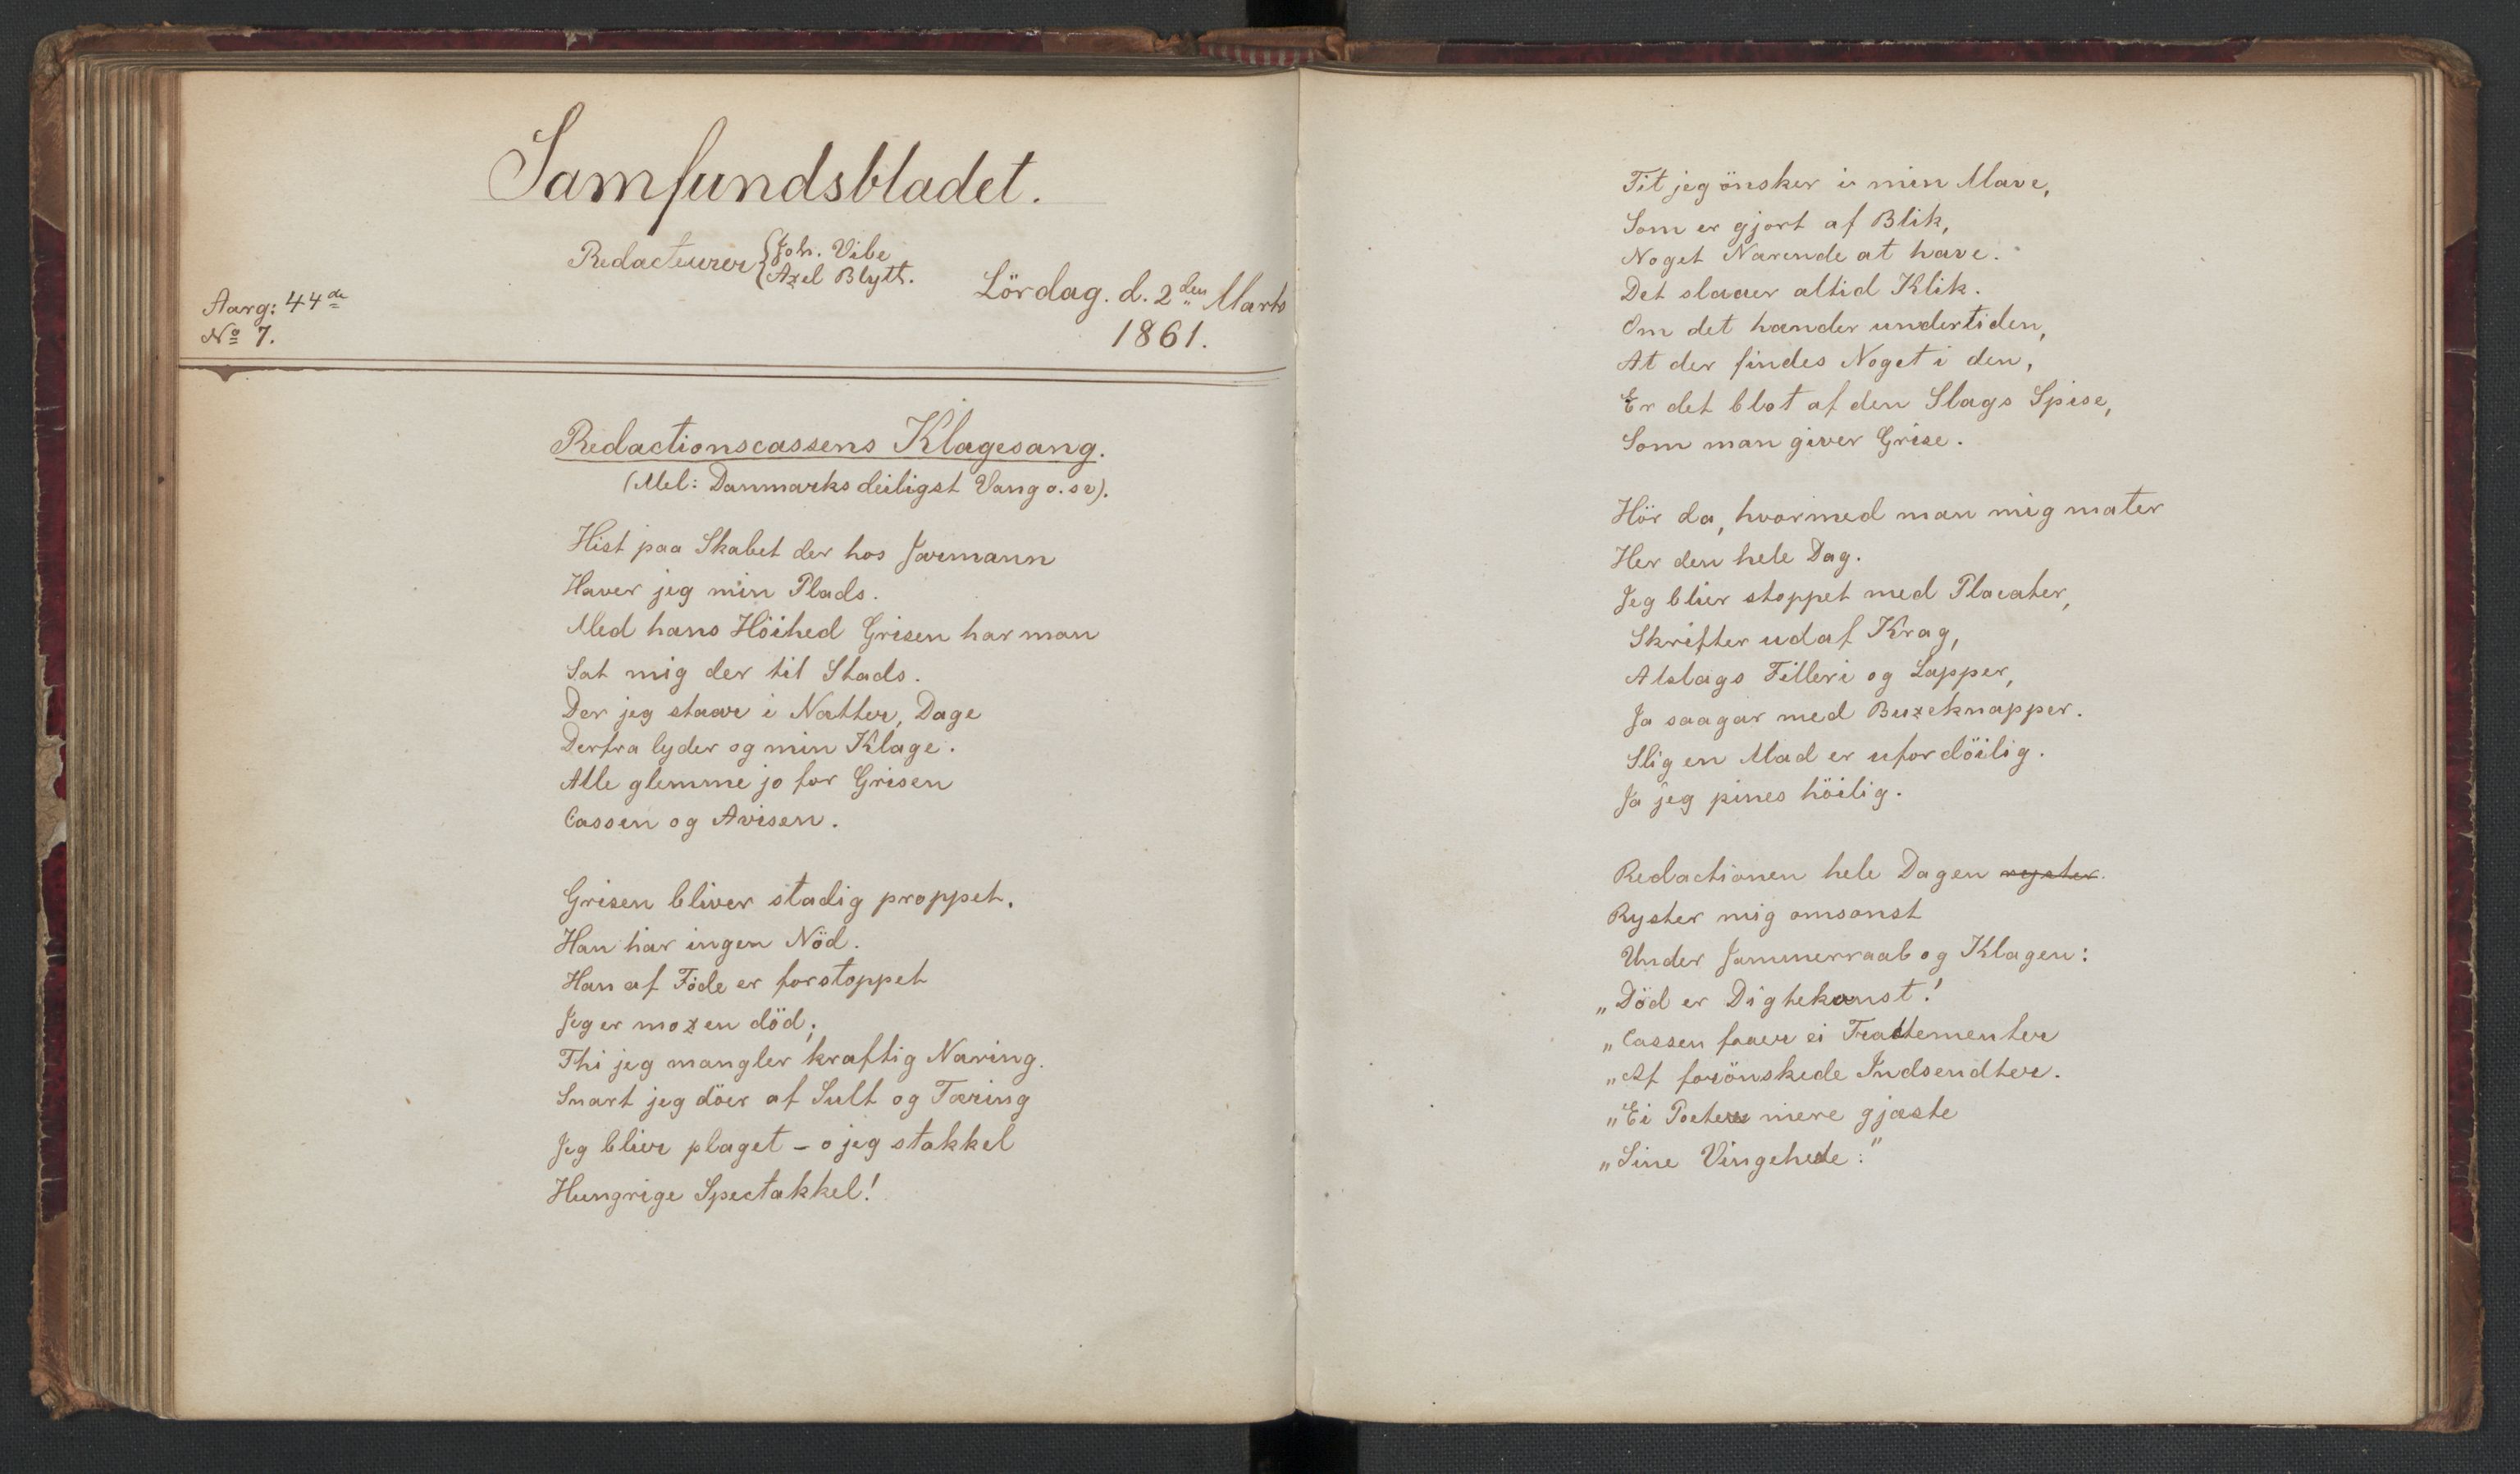 Samfundsbladet.
Redacteurer { Joh. Vibe
Axel Blytt.
Aarg: 44de
No 7.
Lördag. d. 2den Marts
1861.
Redactionscassens Klagesang.
(Mel: Danmarks deiligst Vang o.sv).
Hist paa Skabet der hos Jarmann
Haver jeg min Plads.
Med hans Höihed Grisen har man
Sat mig der til Stads.
Der jeg staar i Nætter, Dage
Derfra lyder og min Klage.
Alle glemme jo for Grisen
Cassen og Avisen.
Grisen bliver stadig proppet.
Han har ingen Nöd.
Han af Föde er forstoppet
Jeg er mozen död;
Thi jeg mangler kraftig Næring.
Snart jeg döer af Sult og Tæring
Jeg blivr plaget - o jeg stakkel
Hungrige Spectakkel!
Tit jeg önsker i min Mave,
Som er gjort af Blik,
Noget Nærende at have.
Det slaaer altid Klik.
Om det hænder undertiden,
At der findes Noget i den,
Er det blot af den Slags Spise,
Som man giver Grise.
Hör da, hvormed man mig mater
Her den hele Dag.
Jeg blier stoppet med Placater,
Skrifter ud af Krag,
Alslags Filleri og Lapper,
Ja saagar med Buxeknapper.
Slig en Mad er ufordöilig.
Ja jeg pines höilig.
Redactionen hele Dagen ryster.
Ryster mig omsonst
Under Jammerraab og Klagen:
„Död er Digtekonst!
„Cassen faaer ei Tractementer
„Af forönskede Indsendter.
„Ei Poeter mere gjæste
„Sine Vingeheste."